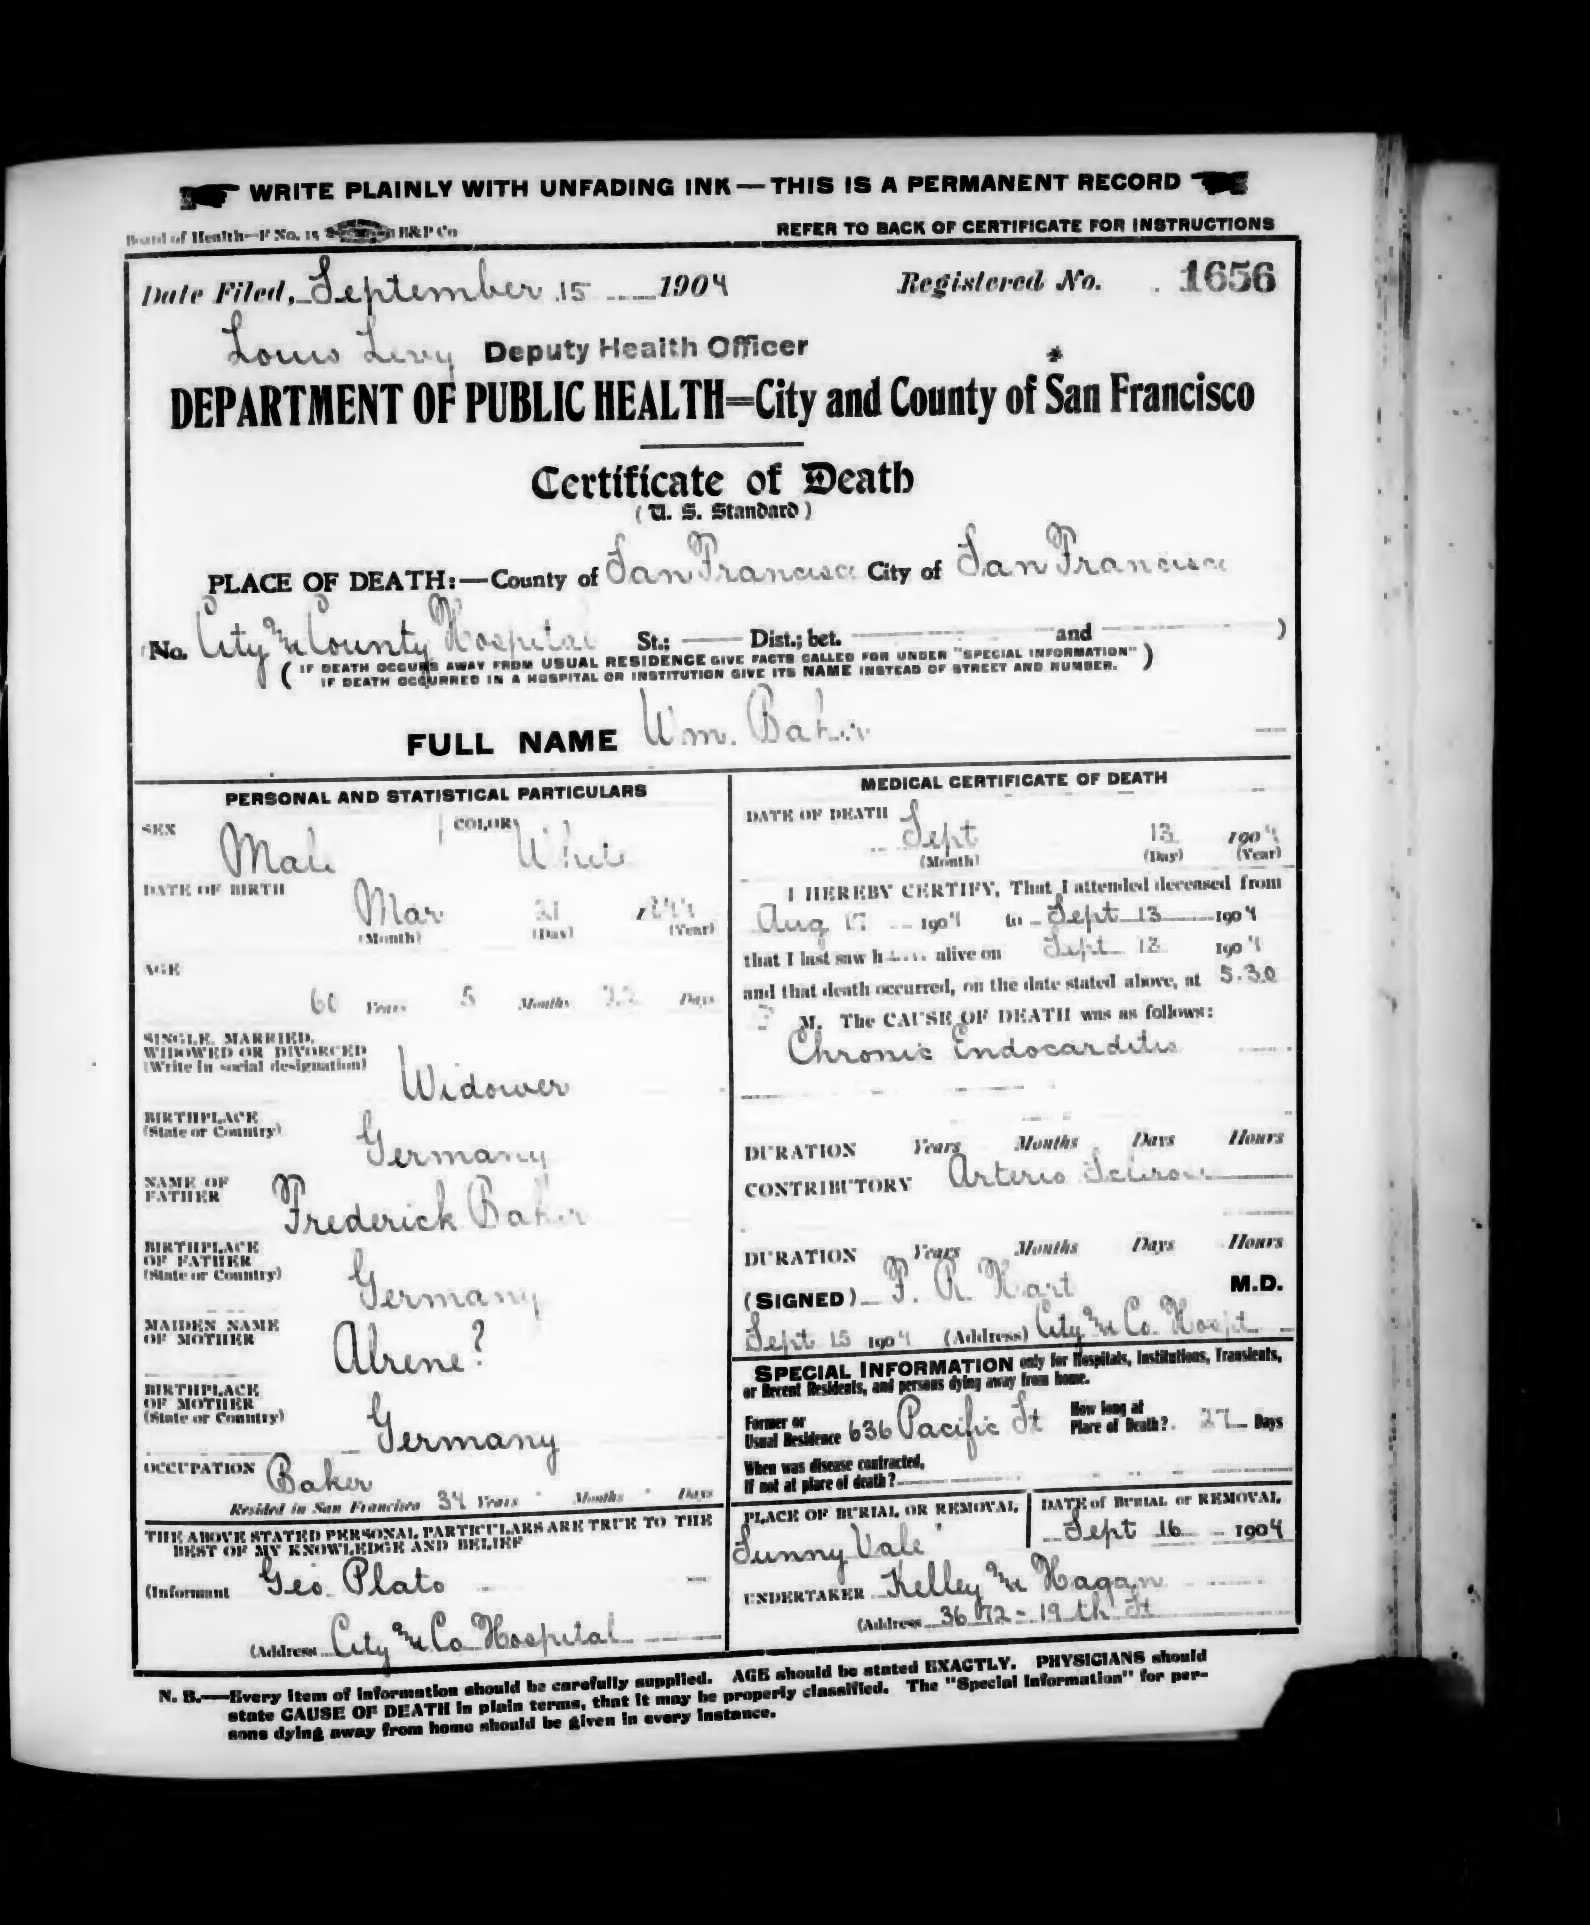 WRITE PLAINLY WITH UNFADING INK — THIS IS A PERMANENT RECORD
Board of Health—F No. 15 B&P Co
REFER TO BACK OF CERTIFICATE FOR INSTRUCTIONS
Date Filed, September 15 1904 Registered No. 1656
Louis Levy Deputy Health Officer
DEPARTMENT OF PUBLIC HEALTH=City and County of San Francisco
Certificate of Death
(U. S. Standard)
PLACE OF DEATH:—County of San Francisco City of San Francisco
No. City and County Hospital St.; Dist.; bet. and )
( IF DEATH OCCURS AWAY FROM USUAL RESIDENCE GIVE FACTS CALLED FOR UNDER "SPECIAL INFORMATION" )
IF DEATH OCCURRED IN A HOSPITAL OR INSTITUTION GIVE ITS NAME INSTEAD OF STREET AND NUMBER.
FULL NAME Wm. Baker
PERSONAL AND STATISTICAL PARTICULARS
SEX Male COLOR White
DATE OF BIRTH Mar 21 1844
(Month) (Day) (Year)
AGE
60 Years 5 Months 22 Days
SINGLE, MARRIED,
WIDOWED OR DIVORCED
(Write in social designation)
Widower
BIRTHPLACE
(State or Country)
Germany
NAME OF
FATHER
Frederick Baker
BIRTHPLACE
OF FATHER
(State or Country)
Germany
MAIDEN NAME
OF MOTHER
Alrene?
BIRTHPLACE
OF MOTHER
(State or Country)
Germany
OCCUPATION Baker
Resided in San Francisco 34 Years Months Days
THE ABOVE STATED PERSONAL PARTICULARS ARE TRUE TO THE
BEST OF MY KNOWLEDGE AND BELIEF
(Informant Geo. Plato
(Address City and Co Hospital
MEDICAL CERTIFICATE OF DEATH
DATE OF DEATH
Sept 13 1904
(Month) (Day) (Year)
I HEREBY CERTIFY, That I attended deceased from
Aug 17 1904 to Sept 13 1904
that I last saw h alive on Sept 13 1904
and that death occurred, on the date stated above, at 5.30
P M. The CAUSE OF DEATH was as follows:
Chronic Endocarditis
DURATION Years Months Days Hours
CONTRIBUTORY Arterio Sclerosis
DURATION Years Months Days Hours
(SIGNED) F. R. Hart M.D.
Sept 15 1904 (Address) City and Co. Hospt
SPECIAL INFORMATION only for Hospitals, Institutions, Transients,
or Recent Residents, and persons dying away from home.
Former or
Usual Residence 636 Pacific St
How long at
Place of Death? 27 Days
When was disease contracted,
If not at place of death?
PLACE OF BURIAL OR REMOVAL
Sunny Vale
DATE of BURIAL or REMOVAL
Sept 16 1904
UNDERTAKER Kelley and Hagan
(Address 3672 - 19th St
N. B.—Every item of information should be carefully supplied. AGE should be stated EXACTLY. PHYSICIANS should
state CAUSE OF DEATH in plain terms, that it may be properly classified. The "Special Information" for per-
sons dying away from home should be given in every instance.